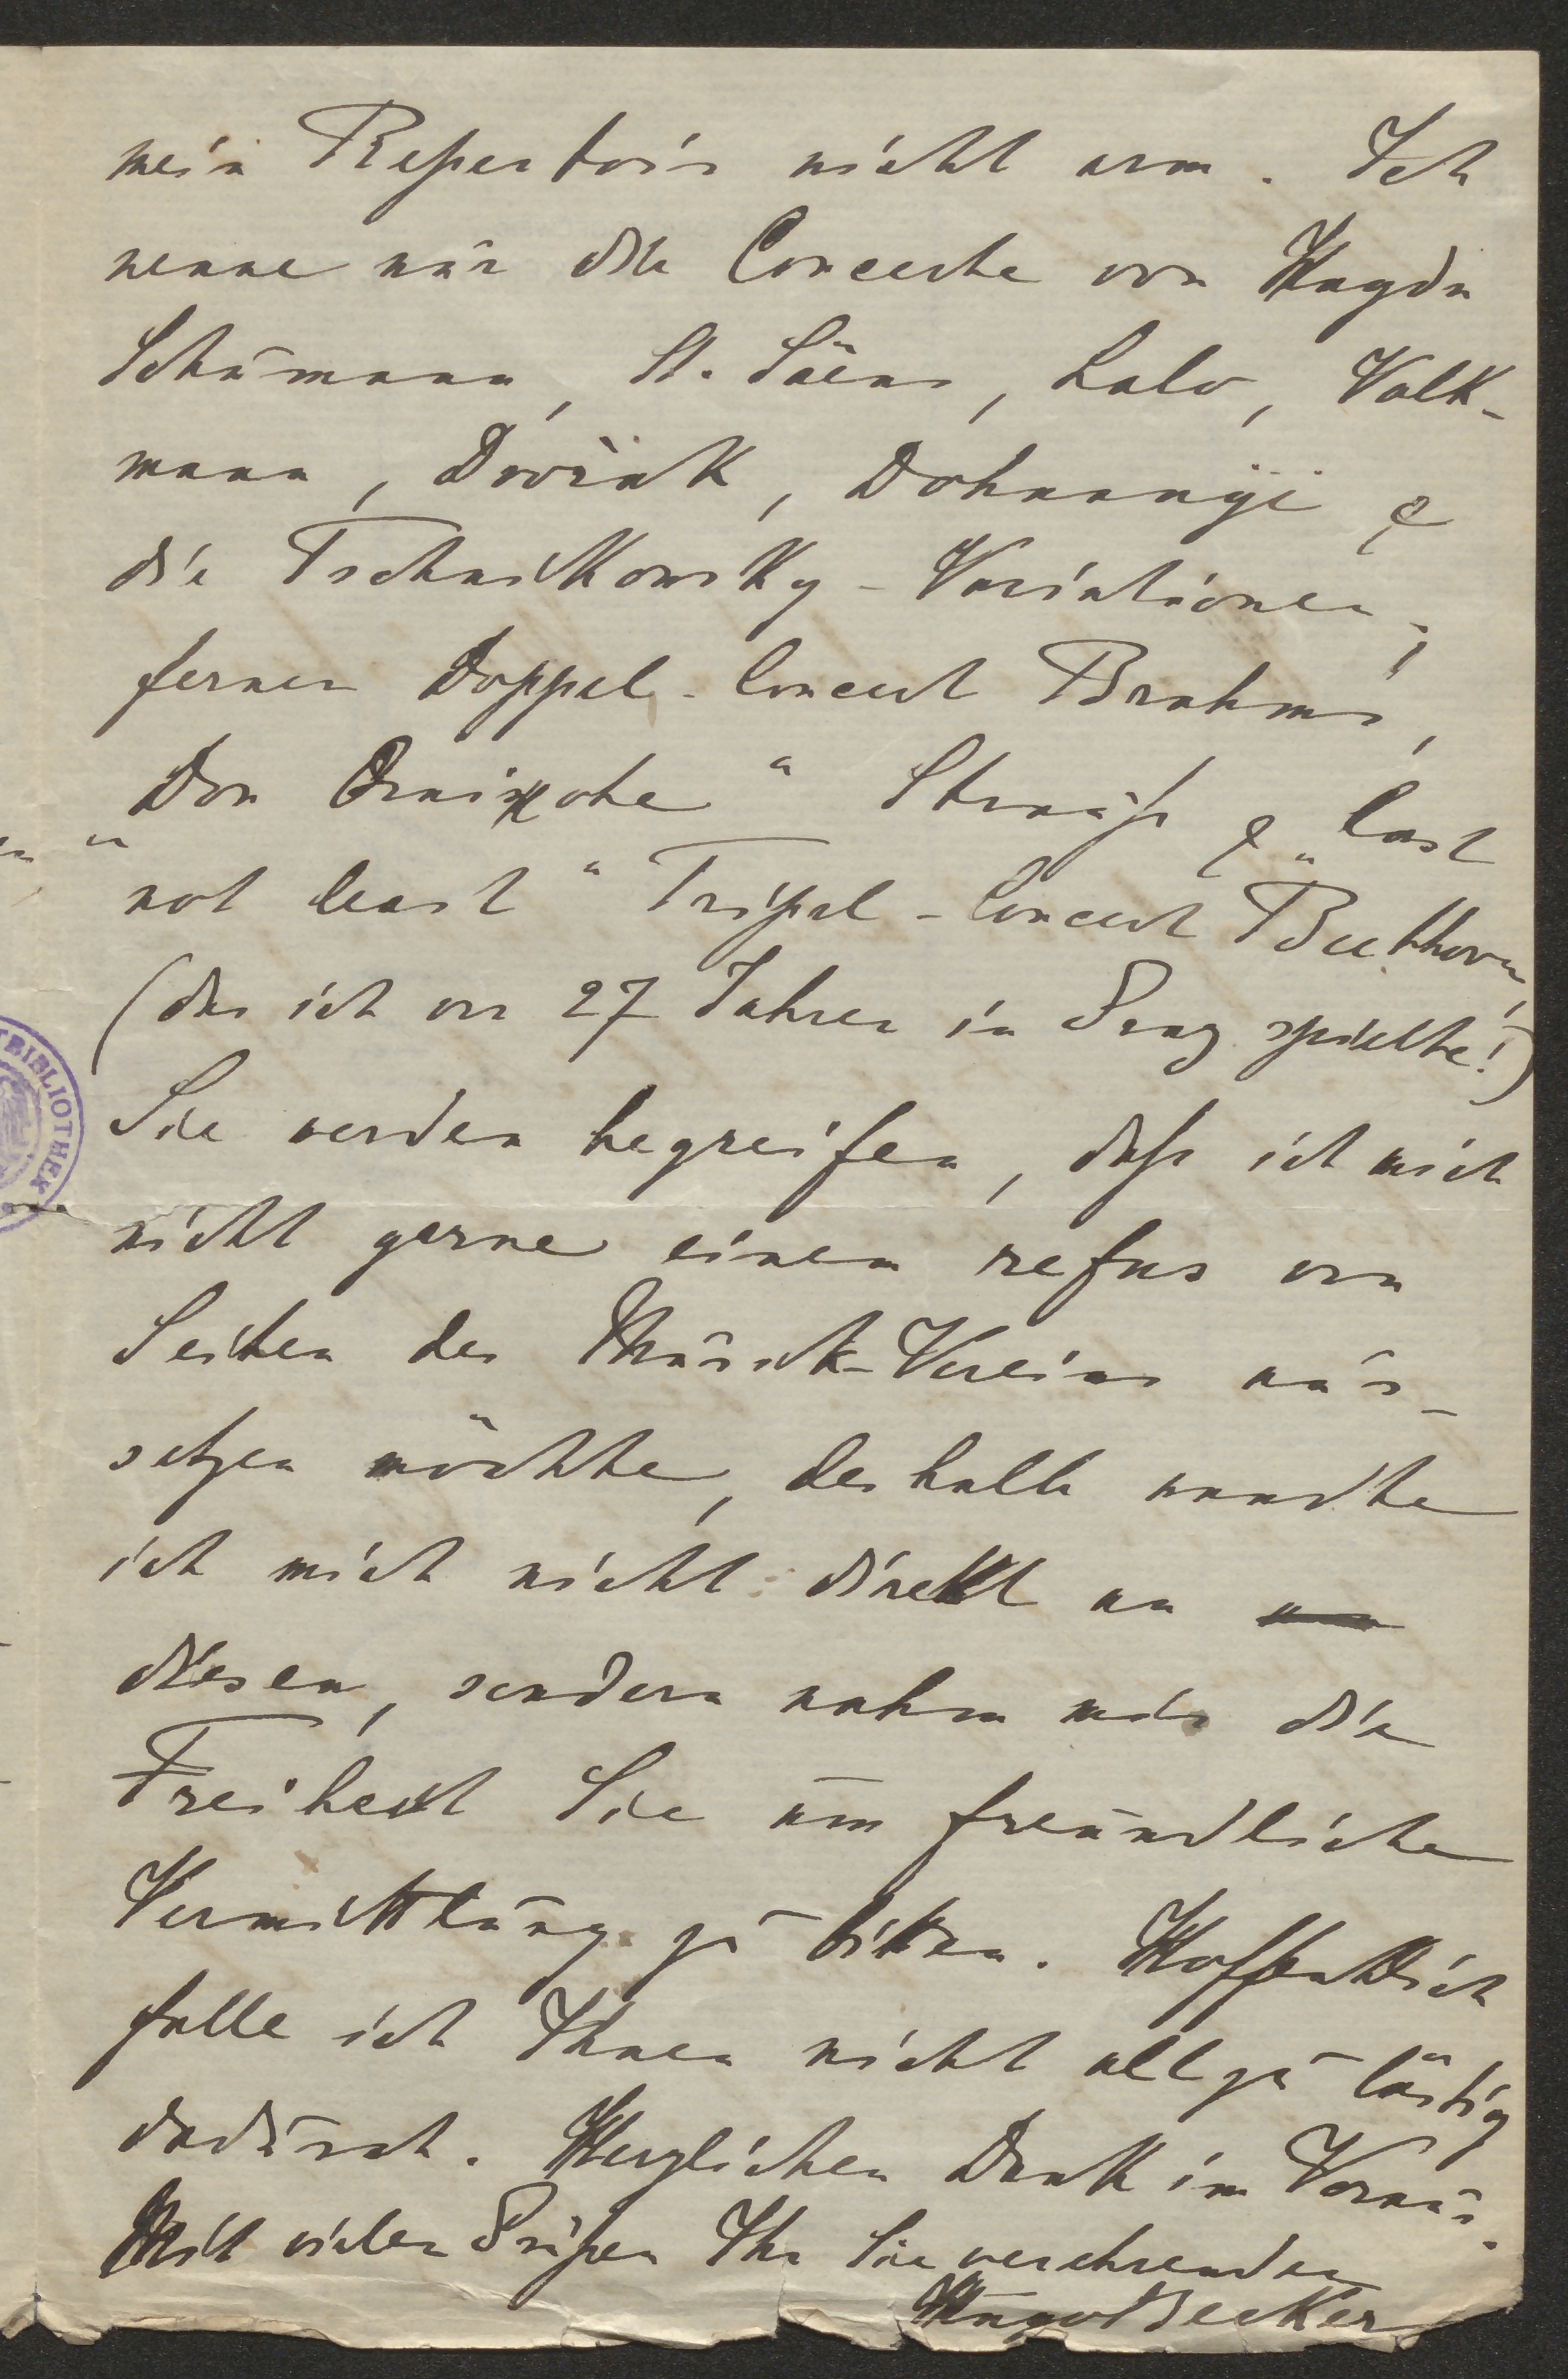 mein Repertoir nicht arm. Ich
nenne nur die Concerte von Haydn
Schumann, St. Säens, Lalo, Volk-
mann, Dvořák, Dohnanyi &
die Tschaikowsky-Variationen;
ferner Doppel-Concert Brahms,
„Don Quixote“ Strauß & „last
not least“ Tripel-Concert Beethoven,
(das ich vor 27 Jahren in Graz spielte!)
Sie werden begreifen, daß ich mich
nicht gerne einem refus von
Seiten des Musik-Vereins aus-
setzen möchte, deshalb wandte
ich mich nicht direkt an
diesen, sondern nahm mir die
Freiheit Sie um freundliche
Vermittlung zu bitten. Hoffentlich
falle ich Ihnen nicht allzu lästig
dadurch. Herzlichen Dank im Voraus.
Mit vielen Grüßen Ihr Sie verehrender
Hugo Becker
BIBLIOTHEK